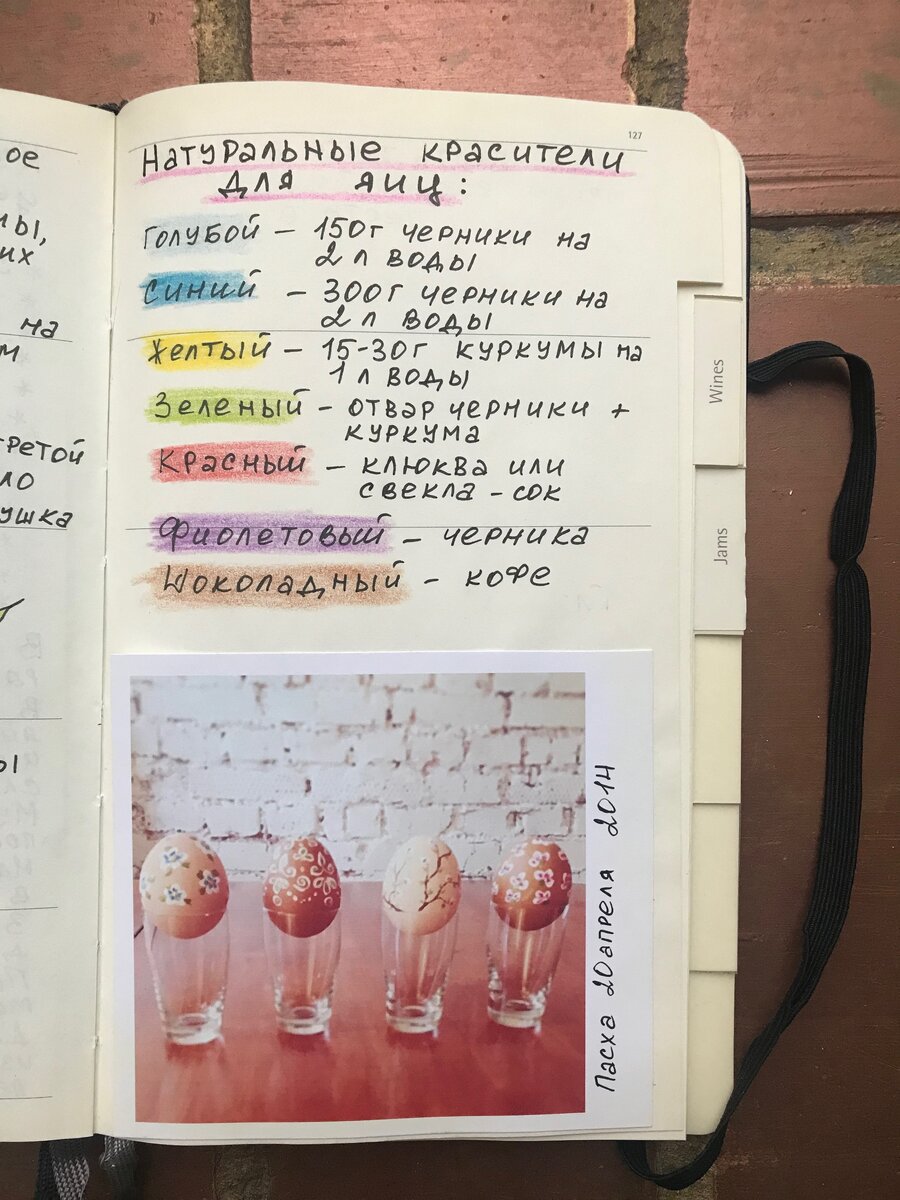 ое
ны,
их
на
м
третой
ло
ушка
ы
127
Натуральные красители
для яиц:
Голубой – 150г черники на
2 л воды
Синий – 300г черники на
2 л воды
Желтый – 15-30г куркумы на
1 л воды
Зеленый – отвар черники +
куркума
Красный – клюква или
свекла – сок
Фиолетовый – черника
Шоколадный – кофе
Пасха 20 апреля 2014
Wines
Jams